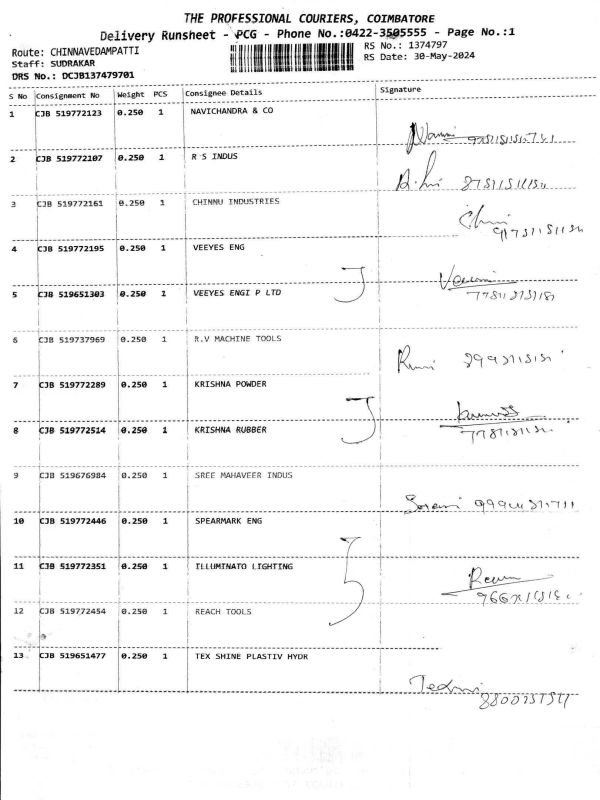 THE PROFESSIONAL COURIERS, COIMBATORE
Delivery Runsheet - PCG - Phone No.:0422-3505555 - Page No.:1
Route: CHINNAVEDAMPATTI RS No.: 1374797
Staff: SUDRAKAR RS Date: 30-May-2024
DRS No.: DCJB137479701
S No Consignment No Weight PCS Consignee Details Signature
1 CJB 519772123 0.250 1 NAVICHANDRA & CO
2 CJB 519772107 0.250 1 R S INDUS
3 CJB 519772161 0.250 1 CHINNU INDUSTRIES
4 CJB 519772195 0.250 1 VEEYES ENG
5 CJB 519651303 0.250 1 VEEYES ENGI P LTD
6 CJB 519737969 0.250 1 R.V MACHINE TOOLS
7 CJB 519772289 0.250 1 KRISHNA POWDER
8 CJB 519772514 0.250 1 KRISHNA RUBBER
9 CJB 519676984 0.250 1 SREE MAHAVEER INDUS
10 CJB 519772446 0.250 1 SPEARMARK ENG
11 CJB 519772351 0.250 1 ILLUMINATO LIGHTING
12 CJB 519772454 0.250 1 REACH TOOLS
13 CJB 519651477 0.250 1 TEX SHINE PLASTIV HYDR